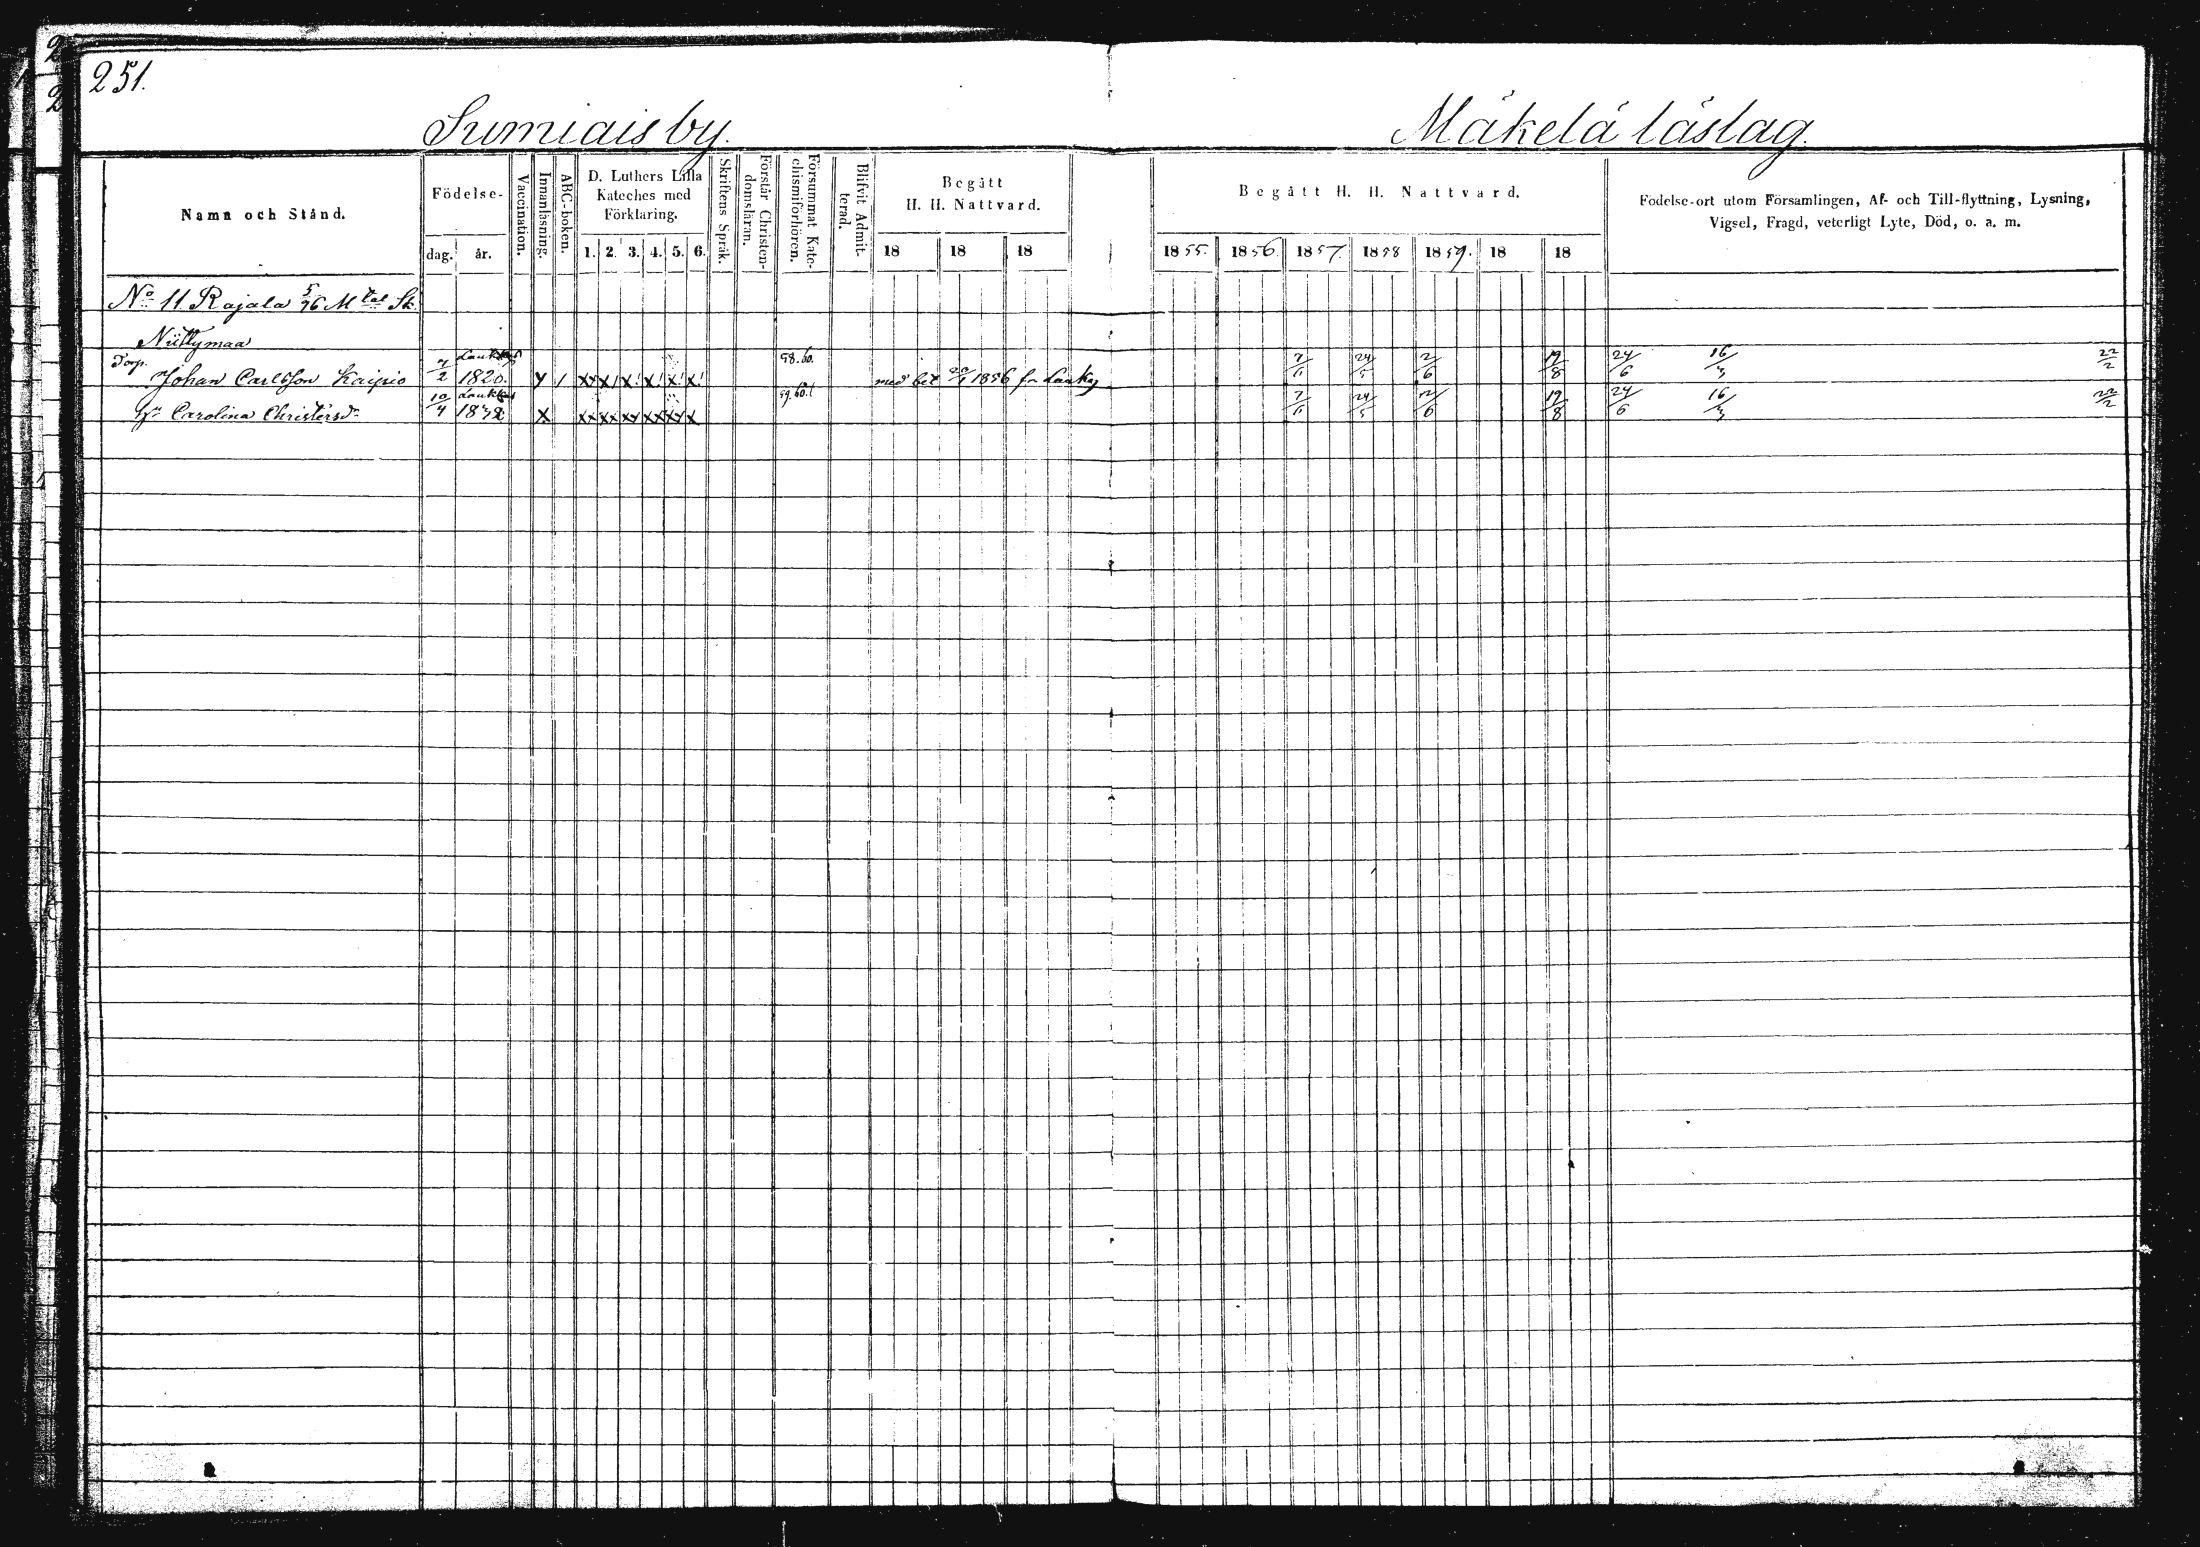 251.
Sumiais by.
Mäkelä läslag.
Namn och Stånd.
Födelse-
dag.
år.
Vaccination.
Innanläsning.
ABC-boken.
D. Luthers Lilla
Kateches med
Förklaring.
1. 2. 3. 4. 5. 6.
Skriftens Språk.
Förstår Christen-
domsläran.
Försummat Kate-
chismiförhören.
Blifvit Admit-
terad.
Begått
H. H. Nattvard.
18 18 18
Begått H. H. Nattvard.
1855. 1856. 1857. 1858 1859. 18 18
Födelse-ort utom Församlingen, Af- och Till-flyttning, Lysning,
Vigsel, Frägd, veterligt Lyte, Död, o. a. m.
No 11 Rajala 5/96 Mtal Sk.
Niittymaa
Torp. Johan Carlsson Kaipio 7/2 1820. Y / 58.60. med bet 1856 fr Lauka 7/6 24/5 2/6 19/8 24/6 16/3 22/2
Hu Carolina Christersdr 10/4 Laukas X 59.60.1 7/6 24/5 2/6 19/8 24/6 16/3 22/2